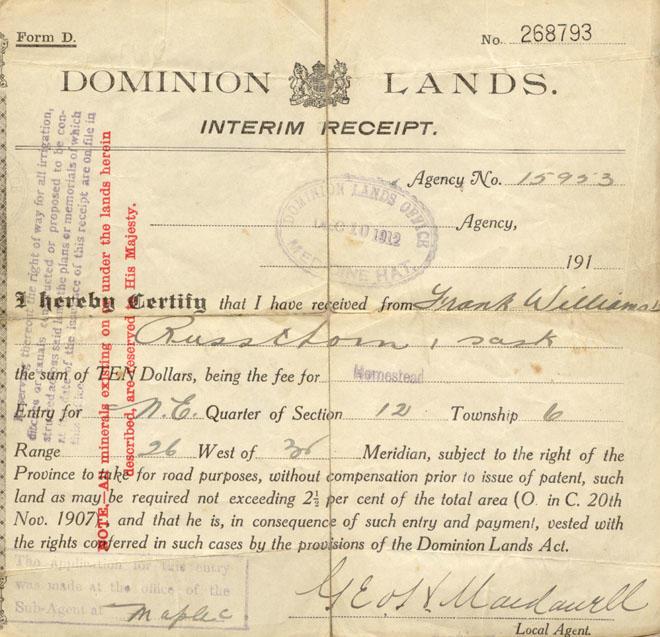 Form D.
No. 268793
DOMINION LANDS.
INTERIM RECEIPT.
Agency No. 15953
DOMINION LANDS OFFICE
DEC 10 1912
MEDICINE HAT.
Agency,
191
I hereby Certify that I have received from Frank Williams
Sask
the sum of TEN Dollars, being the fee for Homestead
Entry for N.E. Quarter of Section 12 Township 6
Range 26 West of 3r Meridian, subject to the right of the
Province to take for road purposes, without compensation prior to issue of patent, such
land as may be required not exceeding 2½ per cent of the total area (O. in C. 20th
Nov. 1907), and that he is, in consequence of such entry and payment, vested with
the rights conferred in such cases by the provisions of the Dominion Lands Act.
The application for this entry
was made at the office of the
Sub-Agent at Maple
Local Agent.
NOTE.—All minerals existing on or under the lands herein
described, are reserved to His Majesty.
Reserving thereout the right of way for all irrigation,
ditches or canals constructed or proposed to be con-
structed across said land the plans or memorials of which
at the date of the issuance of this receipt are on file in
this office.